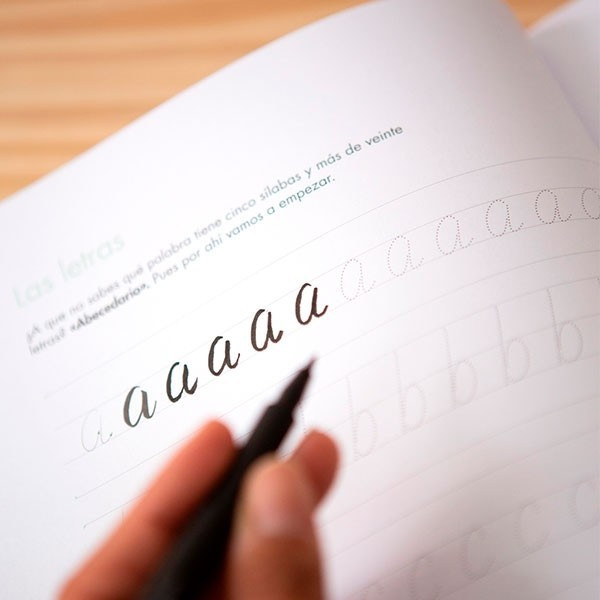 Las letras
¿A que no sabes qué palabra tiene cinco sílabas y más de veinte
letras? «Abecedario». Pues por ahí vamos a empezar.
a a a a a a a a a a a a
b b b b b
c c c c c